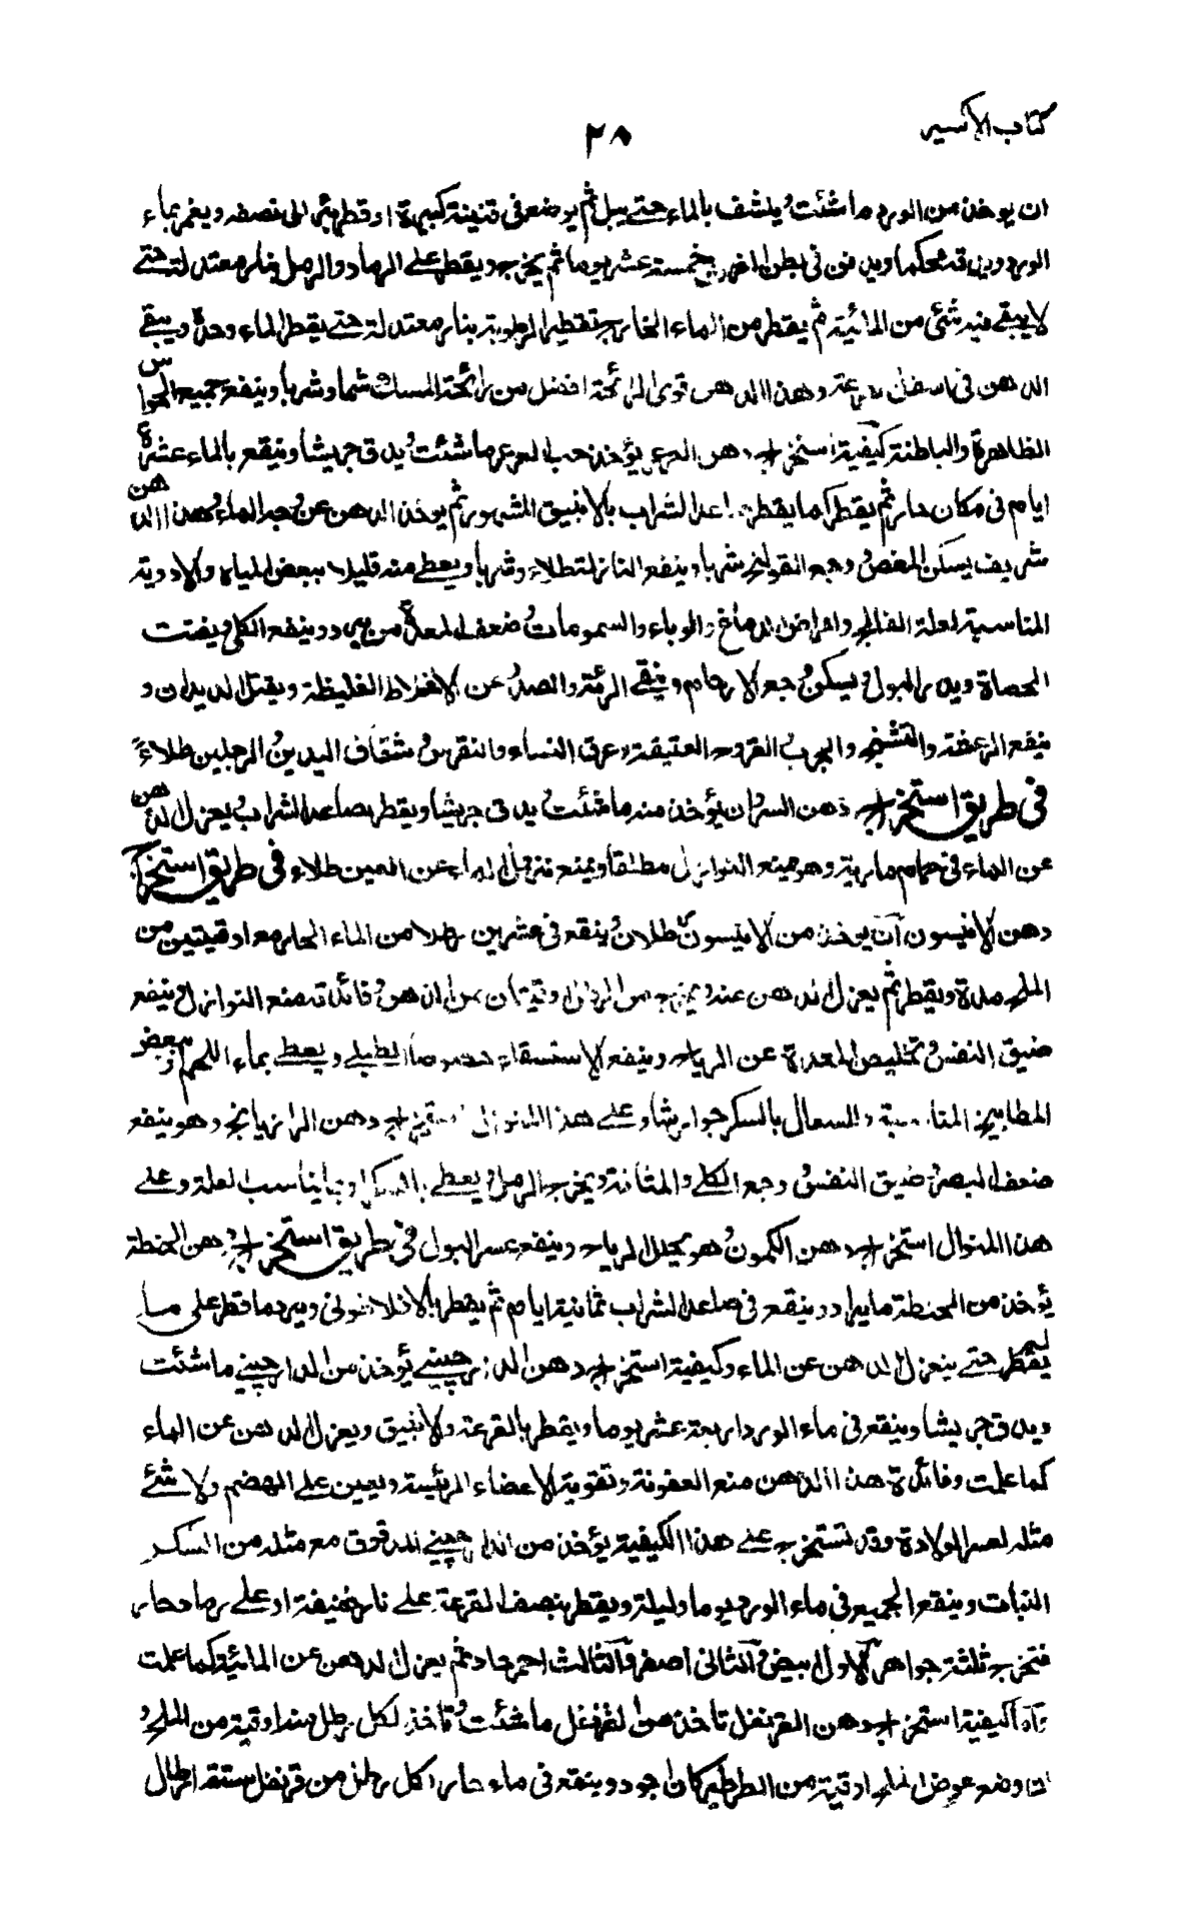 كتاب الاكسير
٢٨
ان يوخذ من الورد ما شئت و ينشف بالماء حتے يبل ثم يوضع فى قنينة كبيرة او قطرميز الى نصفه و يغمر بماء
الورد و يدفن فى بطن الفرس خمسة عشر يوما ثم يخرج و يقطر على الرماد و الرمل بنار معتدلة حتے
لا يبقے فيه شئ من المائية ثم يقطر من الماء الخارج تقطير الرطوبة بنار معتدلة حتے يقطر الماء وحده و يبقے
الدهن فى اسفل القرعة و هذا الدهن قوى الرائحة افضل من رائحة المسك شما و شربا و ينفع جميع الحواس
الظاهرة و الباطنة كيفية استخراج دهن العرعر يؤخذ حب العرعر ما شئت يدق جريشا و ينقع بالماء عشرة
ايام فى مكان حار ثم يقطر كما يقطر صاعد الشراب بالانبيق المشهور ثم يوخذ الدهن عن وجه الماء و هذا الدهن
شريف يسكن المغص و وجع القولنج شربا و ينفع النازلة طلاء و شربا و يعطے منه قليلا ببعض المياه و الادوية
المناسبة لعلة الفالج و امراض الدماغ و الوباء و السمومات و ضعف المعدة من برد و ينفع الكلى و يفتت
الحصاة و يدر البول و يسكن وجع الارحام و ينقے الرئة و الصدر عن الاخلاط الغليظة و يقتل الديدان و
ينفع الرعشة و التشنج و الجرب و القروح العتيقة و عرق النساء و النقرس و شقاق اليدين و الرجلين طلاءً
فى طريق استخراج دهن السرو ان يؤخذ منه ما شئت يدق جريشا و يقطر بصاعد الشراب و يعزل الدهن
عن الماء فى حمام مارية و هو يمنع النوازل مطلقا و يمنع نزول الماء عن العين طلاء فى طريق استخراج
دهن الانيسون آن يوخذ من الانيسون رطلان ينقع فى عشرين رطلا من الماء الحار مع اوقيتين من
الملح مدة و يقطر ثم يعزل الدهن عنه و يخرج من الرطل اوقيتان من الدهن و فائدته منع النوازل و ينفع
ضيق النفس و تخليص المعدة عن الرياح و ينفع الاستسقاء خصوصا الطبلے و يعطے بماء اللحم و ببعض
المطابيخ المناسبة و السعال بالسكر جوارشا و على هذا القانون استخراج دهن الرازيانج و هو ينفع
ضعف البصر و ضيق النفس و وجع الكلے و المثانة و يخرج الرمل و يعطے بالسكر او بما يناسب العلة و على
هذا المنوال استخراج دهن الكمون و هو يحلل الرياح و ينفع عسر البول فى طريق استخراج دهن الحنطة
يؤخذ من الحنطة ما يراد و ينقع فى صاعد الشراب ثمانية ايام ثم يقطر بالافلاطونى و يرد ما قطر على ما
لم يقطر حتے ينعزل الدهن عن الماء و كيفية استخراج دهن الدارچينے يؤخذ من الدارچينے ما شئت
و يدق جريشا و ينقع فى ماء الورد اربعة عشر يوما و يقطر بالقرعة و الانبيق و يعزل الدهن عن الماء
كما علمت و فائدة هذا الدهن منع العفونة و تقوية الاعضاء الرئيسة و يعين على الهضم و لا شئے
مثله لعسر الولادة و قد تستخرج على هذا الكيفية يؤخذ من الدارچينے المدقوق مع مثله من السكر
النبات و ينقع الجميع فى ماء الورد يوما و ليلة و يقطر بنصف القرعة على نار خفيفة او على رماد حار
فتخرج ثلثة جواهر الاول ابيض و الثانى اصفر و الثالث احمر حاد ثم يعزل الدهن عن المائية كما علمت
و آما كيفية استخراج دهن القرنفل تاخذ من القرنفل ما شئت و تاخذ لكل رطل منه اوقية من الملح و
ان وضع عوض الملح اوقية من الطرطير كان اجود و ينقع فى ماء حار لكل رطل من قرنفل ستة ارطال